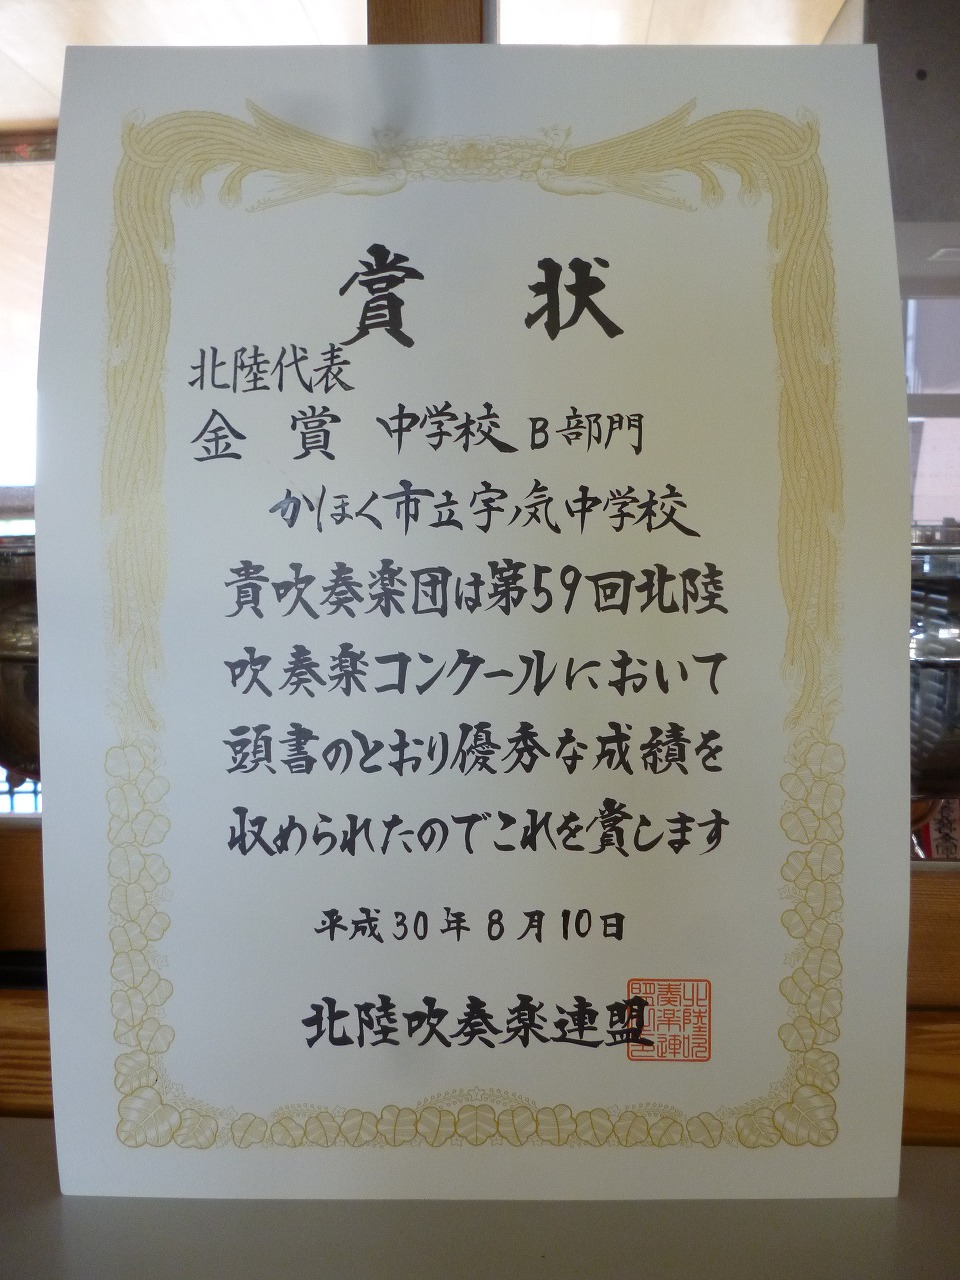 賞状
北陸代表
金賞 中学校 B部門
かほく市立宇ノ気中学校
貴吹奏楽団は第59回北陸
吹奏楽コンクールにおいて
頭書のとおり優秀な成績を
収められたのでこれを賞します
平成30年8月10日
北陸吹奏楽連盟